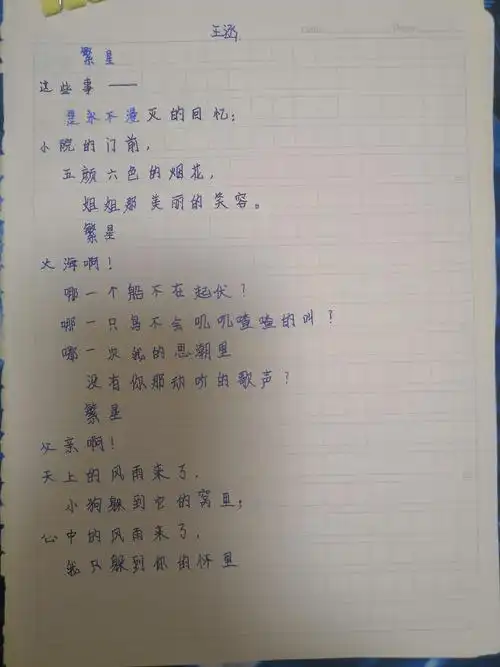 王涵
繁星
这些事——
是永不漫灭的回忆；
小院的门前，
五颜六色的烟花，
姐姐那美丽的笑容。
繁星
大海啊！
哪一个船不在起伏？
哪一只鸟不会叽叽喳喳的叫？
哪一次我的思潮里
没有你那动听的歌声？
繁星
父亲啊！
天上的风雨来了，
小狗躲到它的窝里；
心中的风雨来了，
我只躲到你的怀里